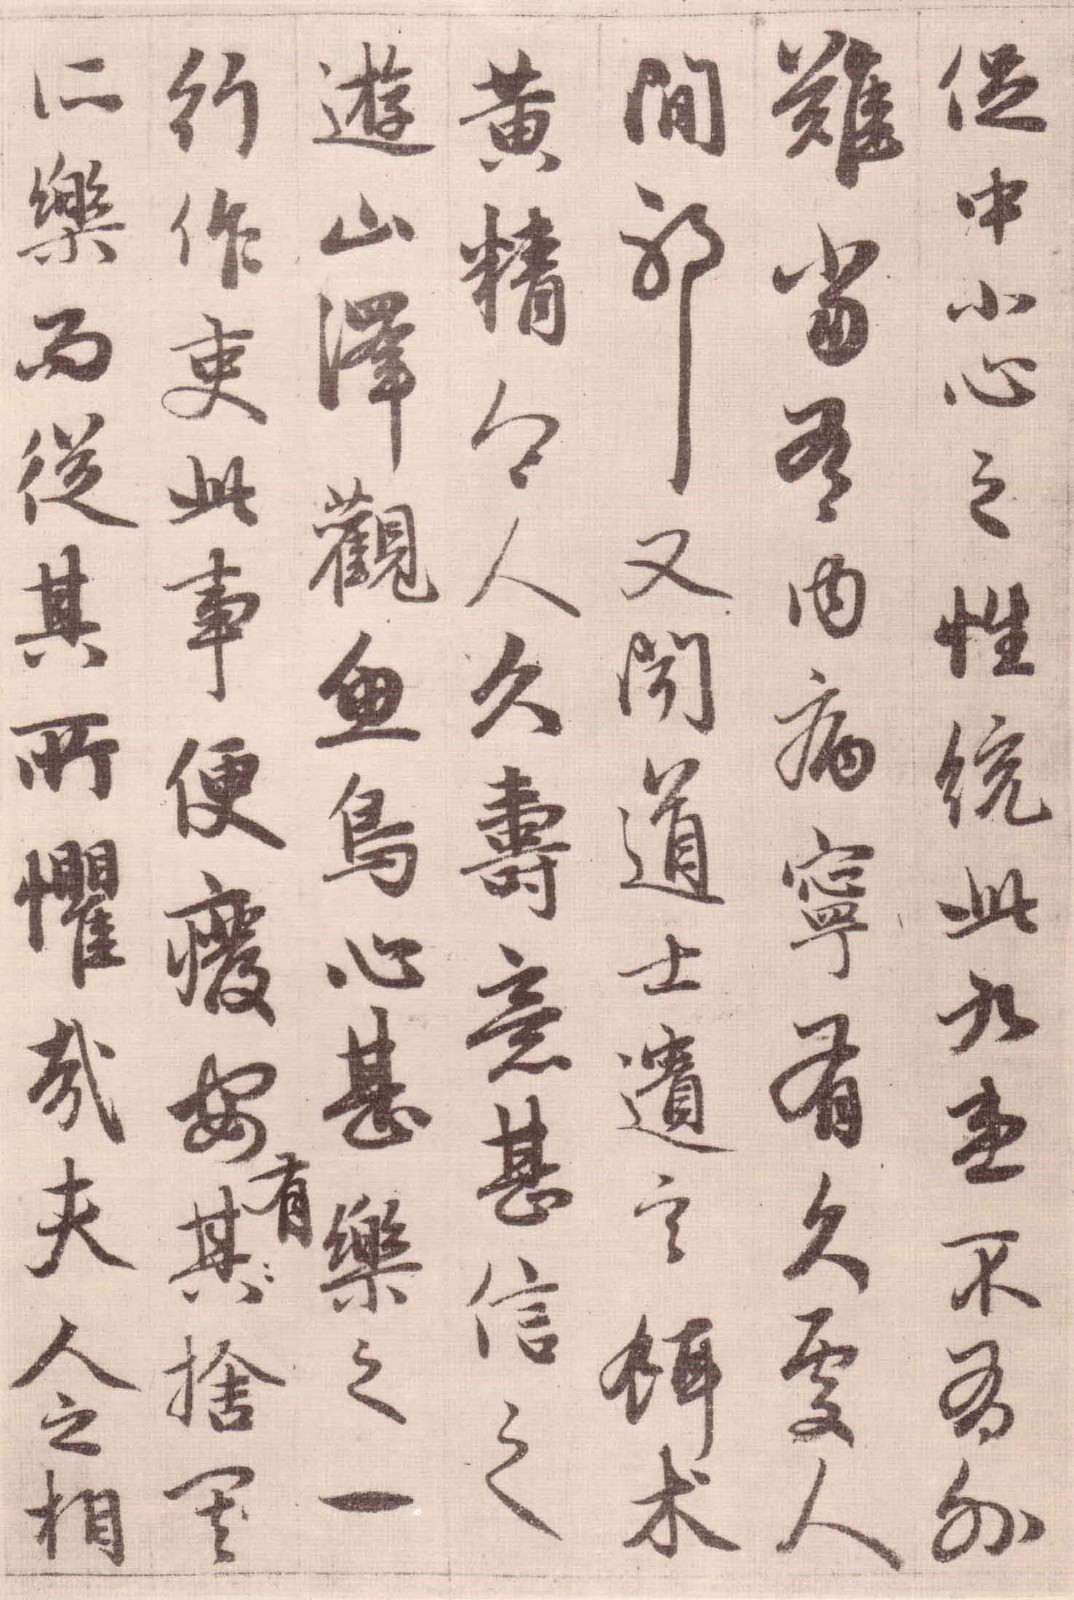 促中小心之性統此九患不有外
難當有內病寧有久處人
間邪又聞道士遺言餌术
黃精令人久壽意甚信之
遊山澤觀魚鳥心甚樂之一
行作吏此事便癈安有其捨其
所樂而從其所懼哉夫人之相